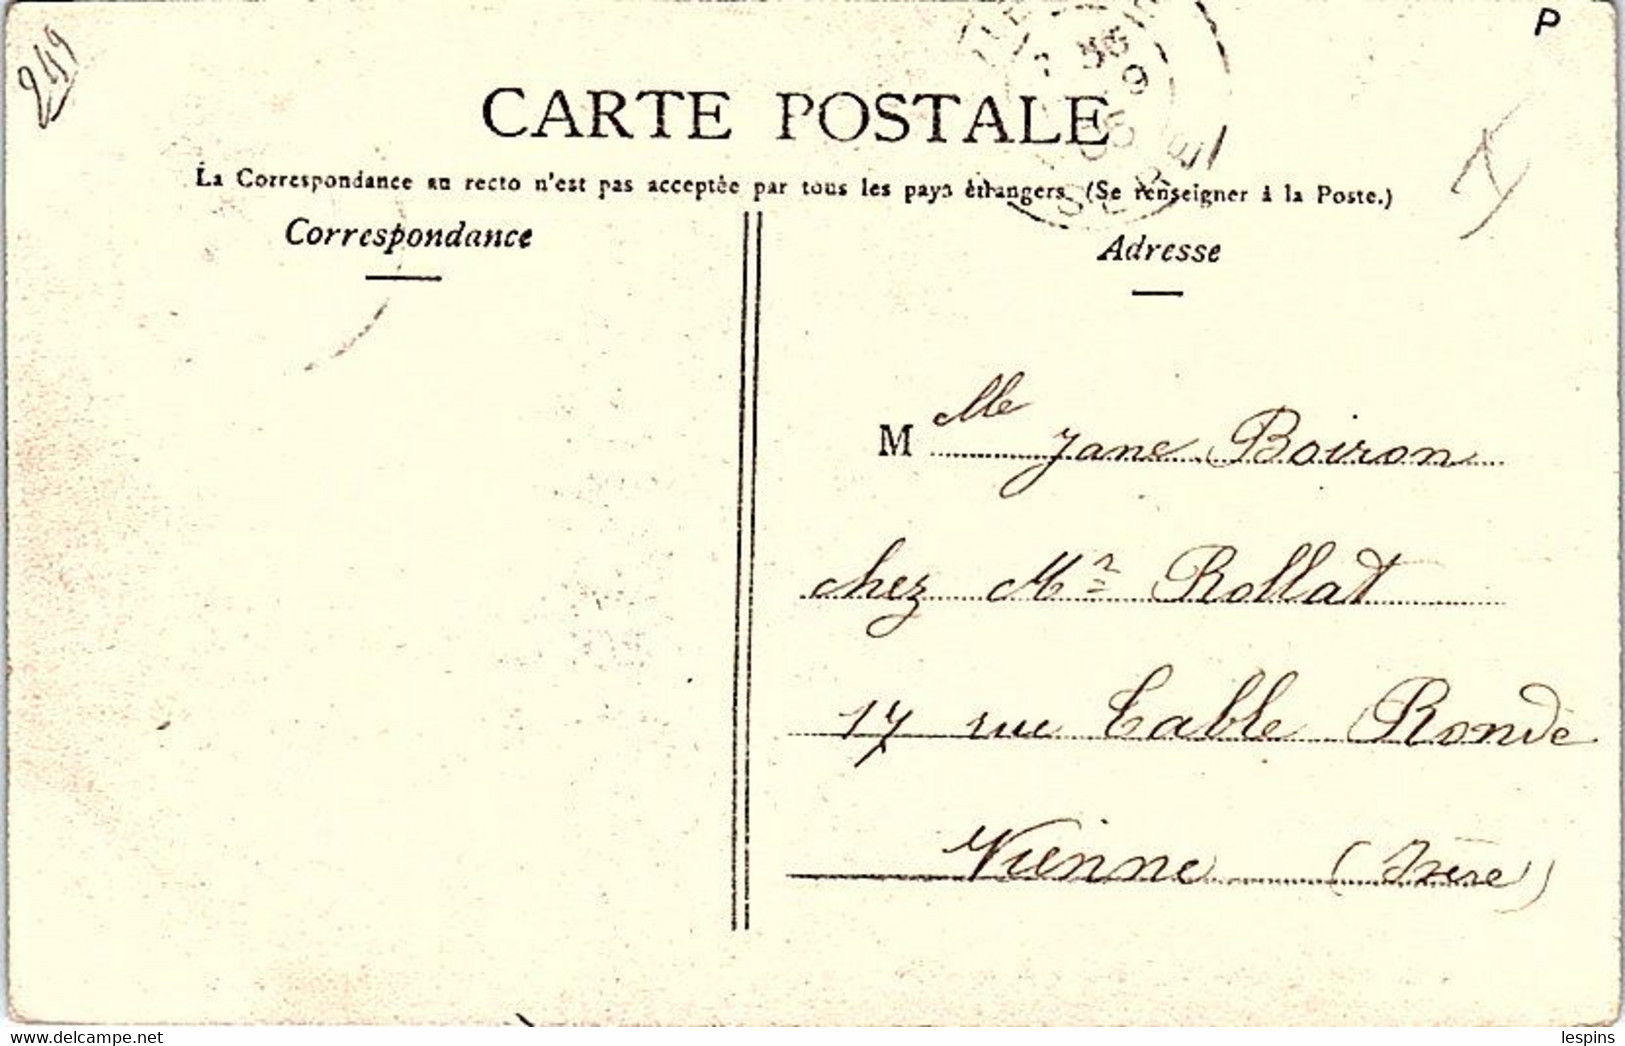 249
P
CARTE POSTALE
La Correspondance au recto n'est pas acceptée par tous les pays étrangers. (Se renseigner à la Poste.)
Correspondance
Adresse
M lle Jane Boiron
chez Mr Rollat
17 rue Table Ronde
Vienne (Isère)
www.delcampe.net
lespins